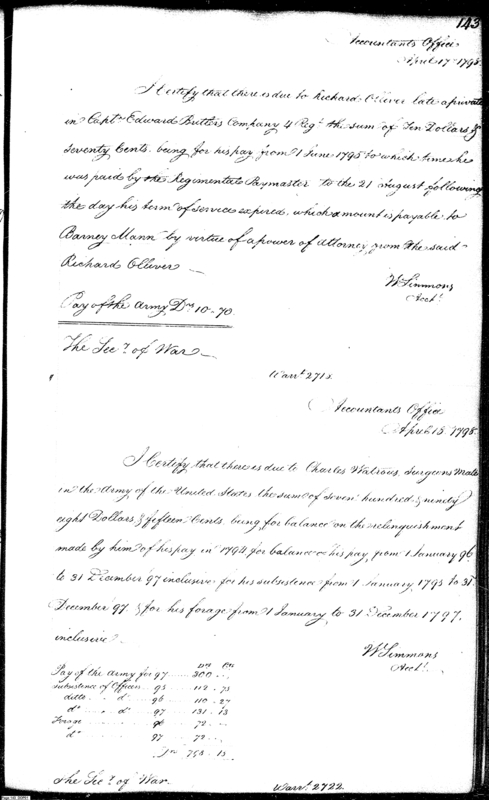 143
Accountants Office
April 17th 1798
I Certify that there is due to Richard Olliver late a private
in Captn. Edward Butlers Company 4 Regt. the sum of Ten Dollars &
Seventy Cents. being for his pay from 1 June 1795 to which time he
was paid by the Regimental Paymaster to the 21 August following
the day his term of service expired. which amount is payable to
Barney Mann by virtue of a power of Attorney from the said
Richard Olliver
W Simmons
Acct.
Pay of the Army, Drs 10-70.
The Secy. of War
Warrt. 2715.
Accountants Office
April 13. 1798.
I Certify that there is due to Charles Watrous, Surgeons Mate
in the Army of the United States the sum of Seven hundred & ninety
eight Dollars & fifteen Cents. being for balance on the relinquishment
made by him of his pay in 1794 for balance of his pay, from 1 January 96
to 31 December 97 inclusive for his subsistence from 1 January 1795 to 31
December 97 & for his forage from 1 January to 31 December 1797.
inclusive
W Simmons
Acct.
Drs Cts
Pay of the Army for 97 300
subsistence of Officers 95 112. 73
ditto do 96 110 27
do do 97 131. 13
Forage 96 72
do 97 72
Drs 798. 13
The Secy. of War.
Warrt. 2722.